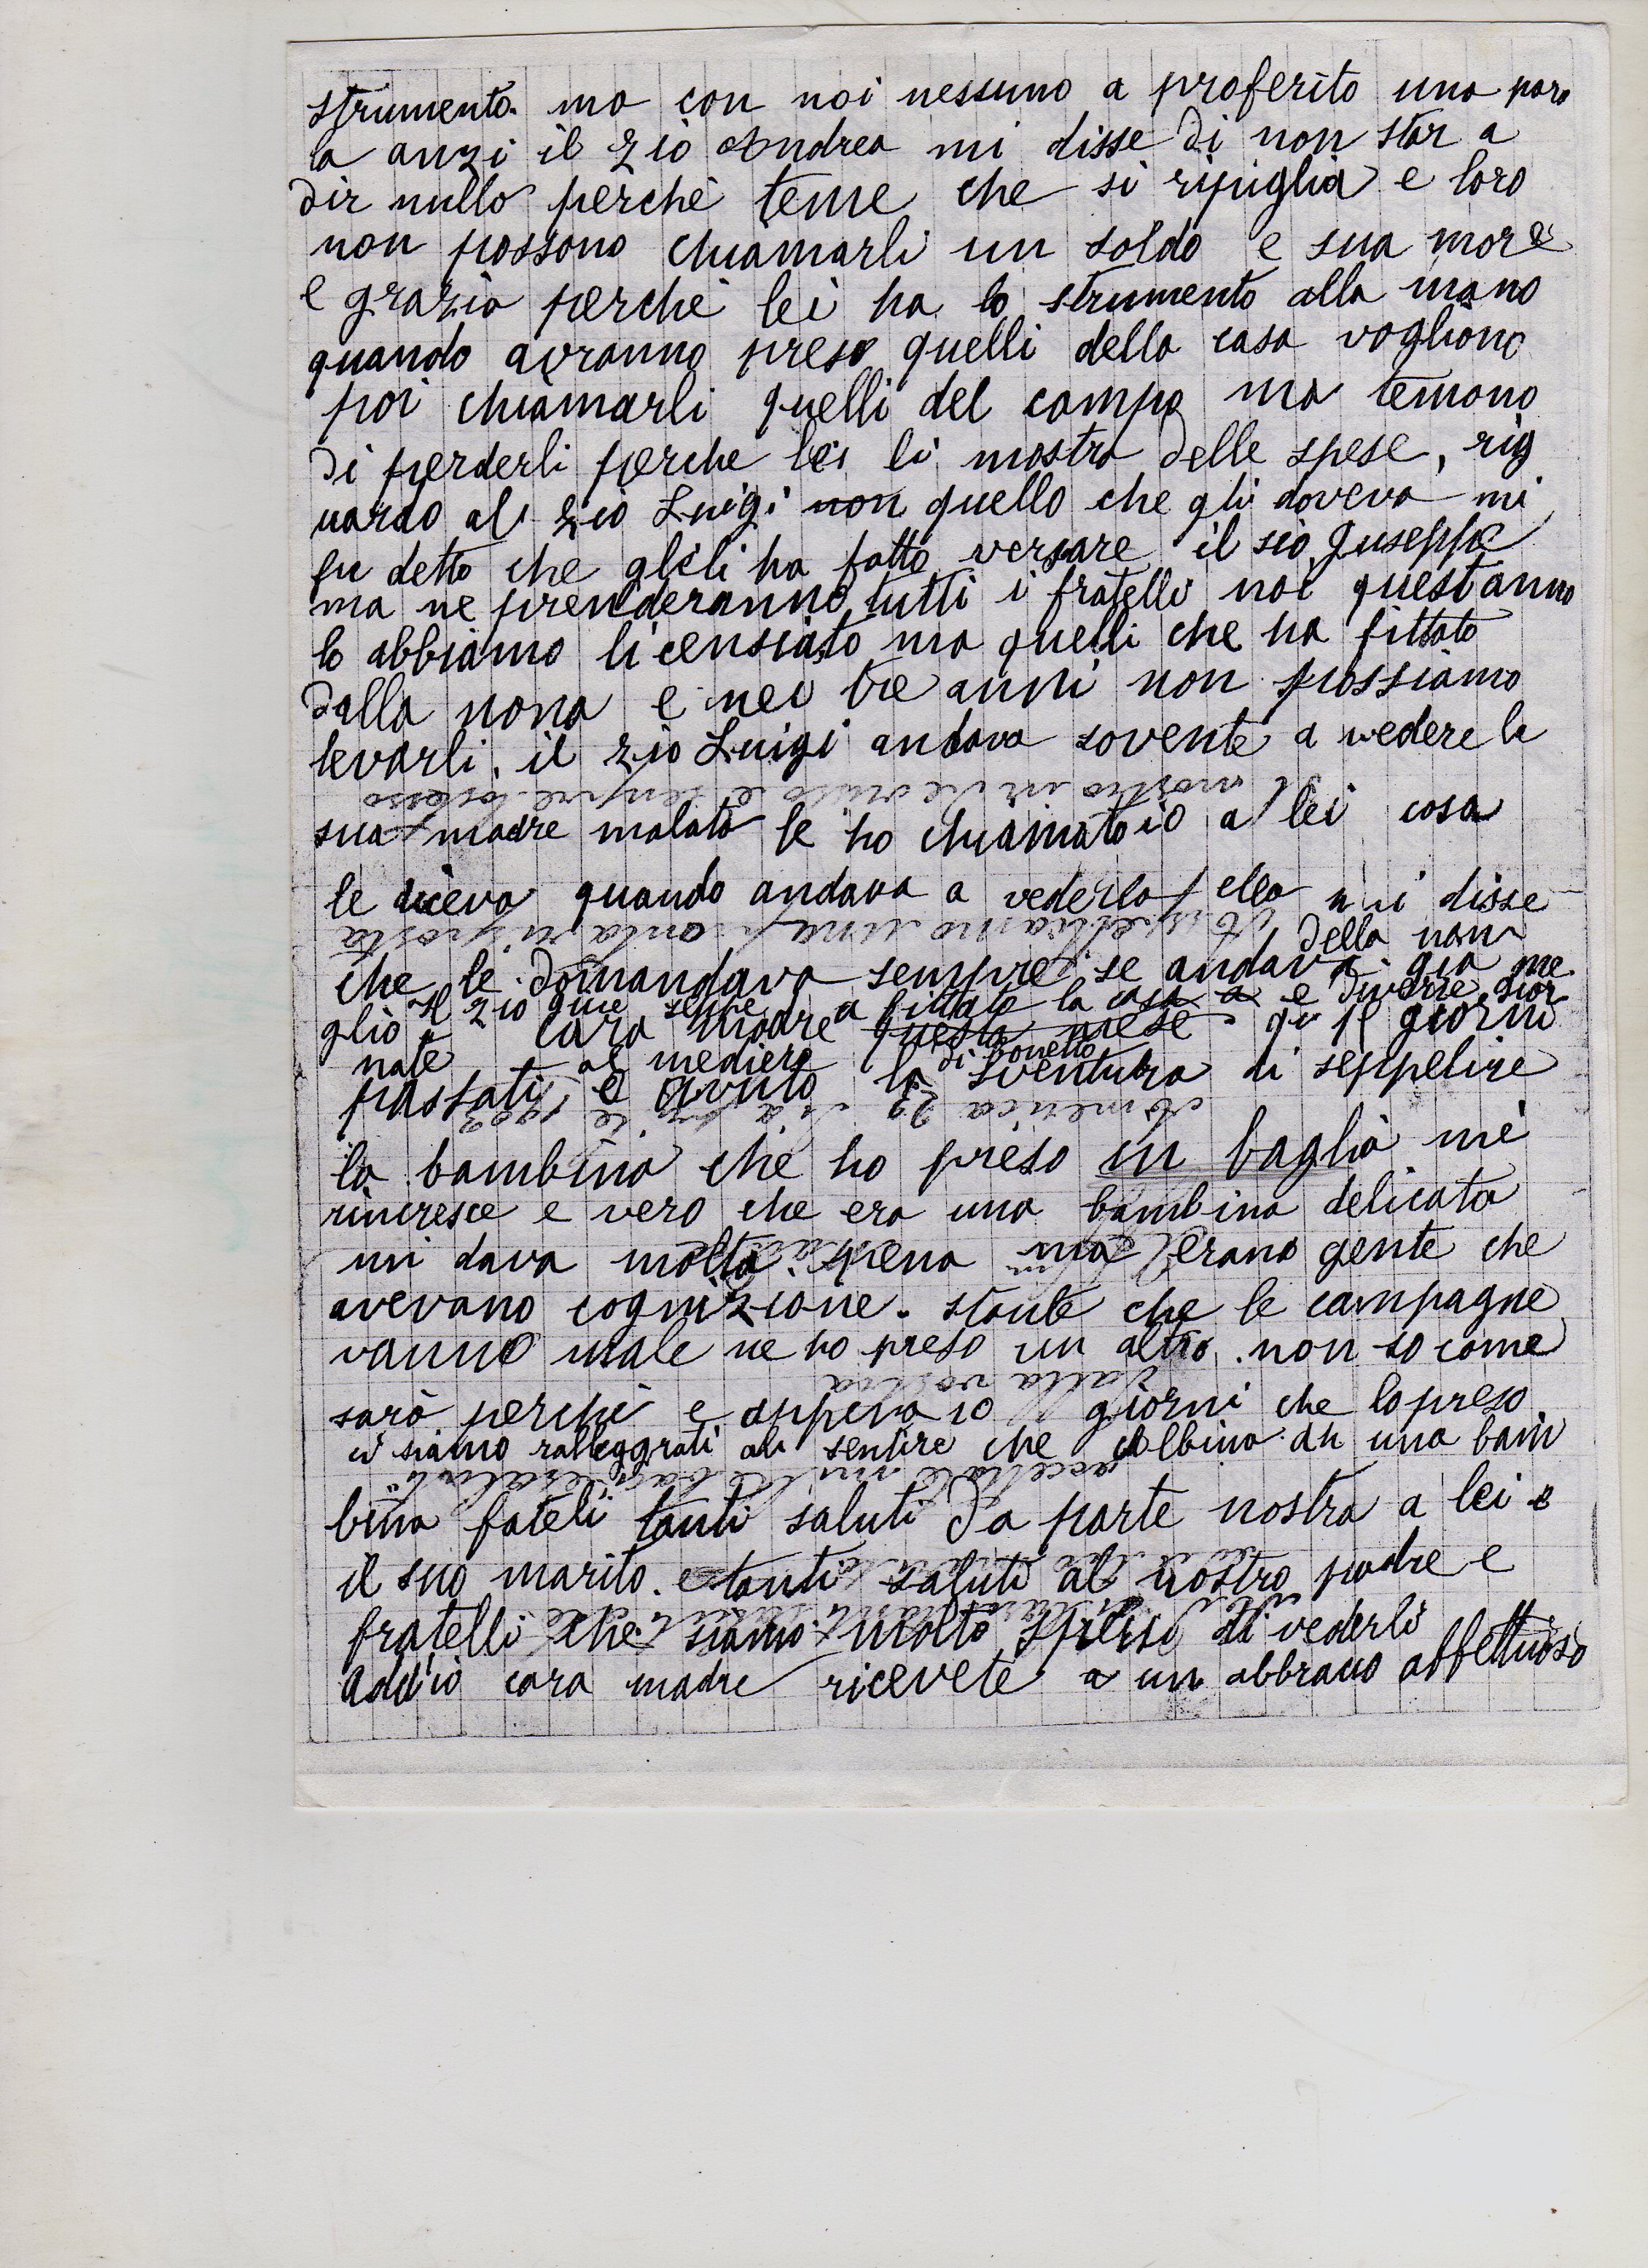 strumento. ma con noi nessuno a proferito una paro
la anzi il zio Andrea mi disse di non star a
dir nullo perchè teme che si ripiglia e loro
non possono chiamarli un soldo e sua more
e grazia perchè lei ha lo strumento alla mano
quando avranno preso quelli della casa vogliono
poi chiamarli quelli del campo ma temono
di perderli perche lei li mostra delle spese, rig
uardo al zio Luigi non quello che gli doveva mi
fu detto che glieli ha fatto versare il sio Guseppe
ma ne prenderanno tutti i fratelli noi questanno
lo abbiamo licensiato ma quelli che ha fittato
dalla nona e nei tre anni non possiamo
levarli. il zio Luigi andava sovente a vedere la
mostro in e sempre lo stesso
sua madre malata le ho chiamato io a lei cosa
le diceva quando andava a vederla ella mi disse
Aspettiamo una pronta risposta
che le domandava sempre se andava già me
della non
glio
Il zio Gius seppe a fittato la casa a e diverse gior
cara madre questa mese giorni
nate al mediero di bonetto
passati e avuto la sventura di seppelire
Domenica 29 1902
la bambina che ho preso in baglia mi
rincresce e vero che era una bambina delicata
mi dava molta pena ma erano gente che
avevano cognizione. stante che le campagne
vanno male ne ho preso un altro. non so come
dalla vostra
sarà perchè e appena 10 giorni che lo preso.
ci siamo ralleggrati al sentire che Albina una bam
accettate mille baci e saluti
bina fateli tanti saluti da parte nostra a lei e
il suo marito. e tanti saluti al nostro padre e
fratelli che siamo molto spilisi di vederli
addio cara madre ricevete a un abbraccio affettuoso